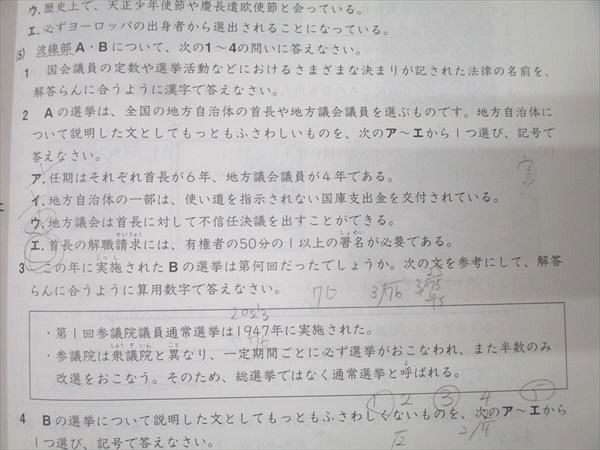 ウ.歴史上で、天正少年使節や慶長遣欧使節と会っている。
エ.必ずヨーロッパの出身者から選出されることになっている。
(5) 波線部A・Bについて、次の1〜4の問いに答えなさい。
1 国会議員の定数や選挙活動などにおけるさまざまな決まりが記された法律の名前を、
解答らんに合うように漢字で答えなさい。
2 Aの選挙は、全国の地方自治体の首長や地方議会議員を選ぶものです。地方自治体に
ついて説明した文としてもっともふさわしいものを、次のア〜エから1つ選び、記号で
答えなさい。
ア.任期はそれぞれ首長が6年、地方議会議員が4年である。
イ.地方自治体の一部は、使い道を指示されない国庫支出金を交付されている。
ウ.地方議会は首長に対して不信任決議を出すことができる。
せいきゅう しょめい
エ.首長の解職請求には、有権者の50分の1以上の署名が必要である。
じっし
3 この年に実施されたBの選挙は第何回だったでしょうか。次の文を参考にして、解答
らんに合うように算用数字で答えなさい。
76 3/76 3/75
・第1回参議院議員通常選挙は1947年に実施された。
しゅうぎいん こと
・参議院は衆議院と異なり、一定期間ごとに必ず選挙がおこなわれ、また半数のみ
改選をおこなう。そのため、総選挙ではなく通常選挙と呼ばれる。
1 2 3 4 5
4 Bの選挙について説明した文としてもっともふさわしくないものを、次のア〜エから
1つ選び、記号で答えなさい。